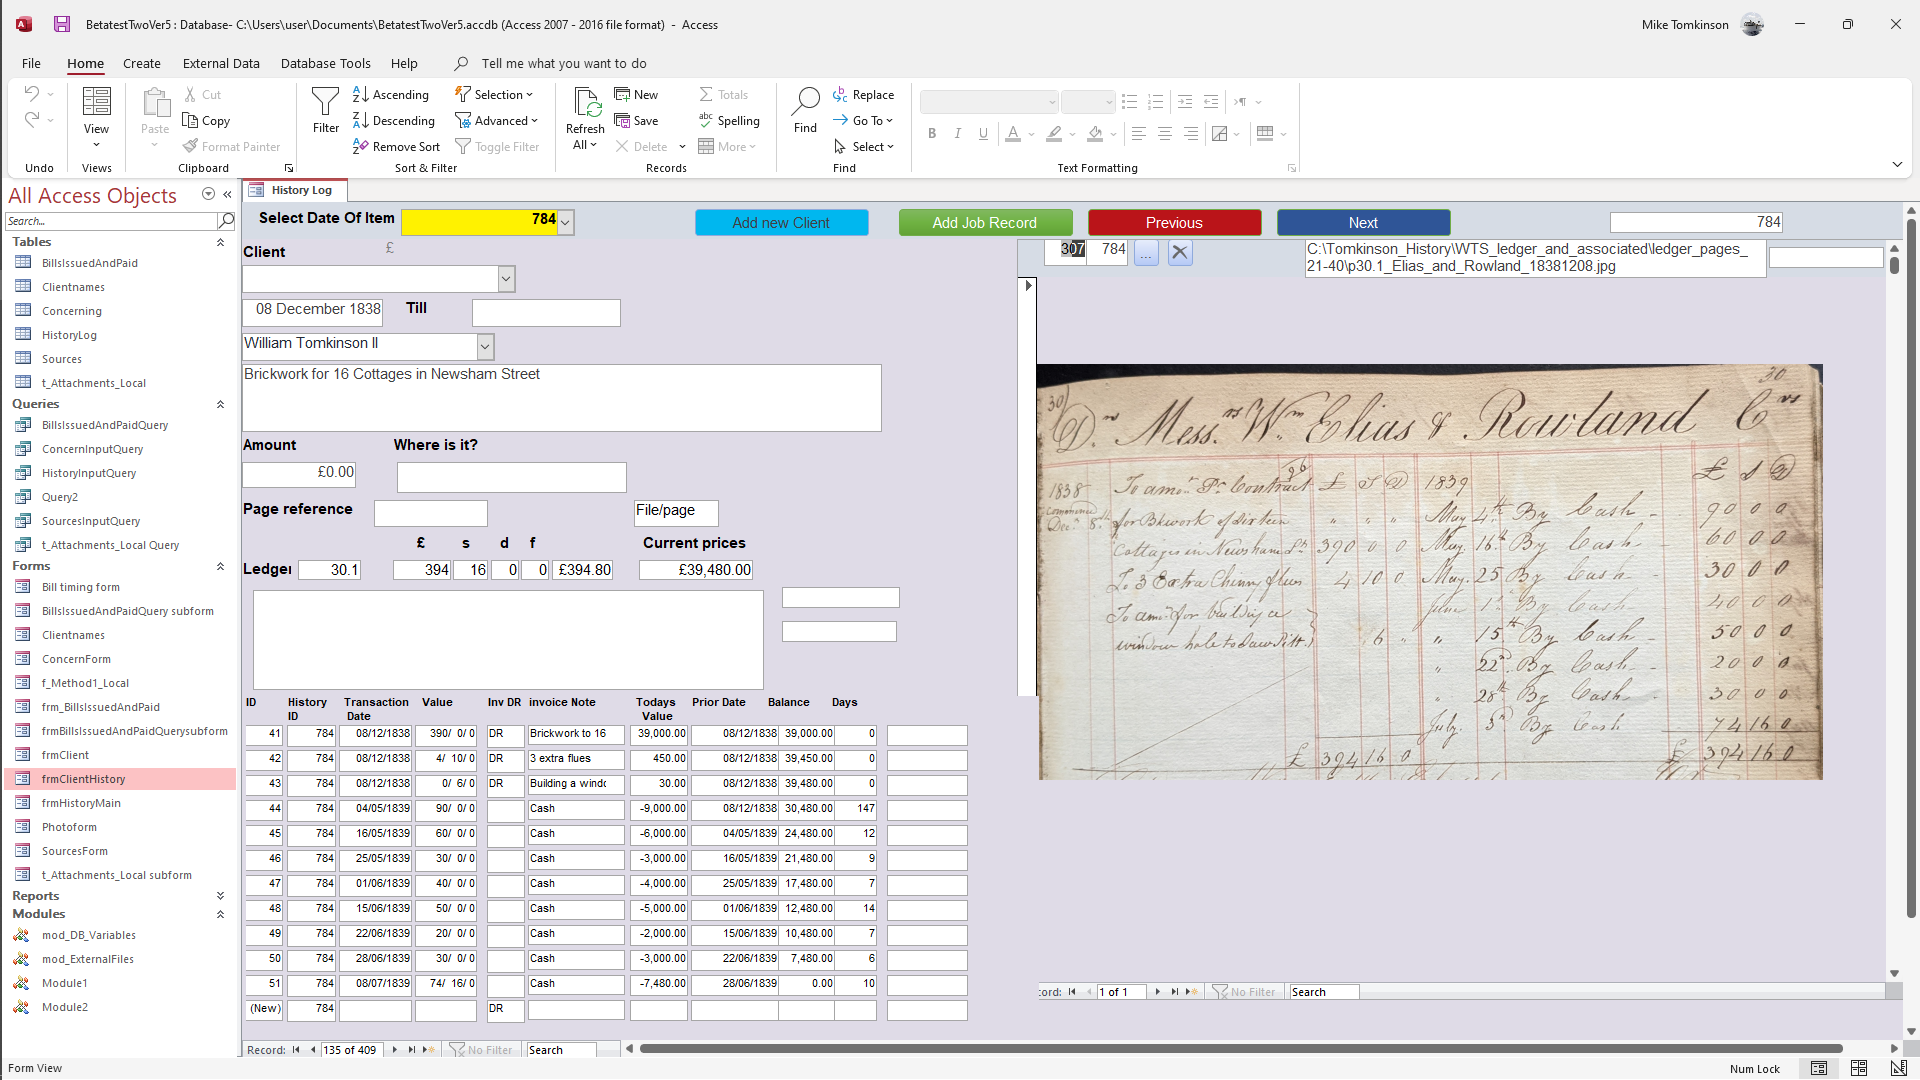 BetatestTwoVer5 : Database- C:\Users\user\Documents\BetatestTwoVer5.accdb (Access 2007 - 2016 file format) - Access
Mike Tomkinson
File Home Create External Data Database Tools Help Tell me what you want to do
Undo
View
Views
Paste
Cut
Copy
Format Painter
Clipboard
Filter
Ascending
Descending
Remove Sort
Selection
Advanced
Toggle Filter
Sort & Filter
Refresh All
New
Save
Delete
Totals
Spelling
More
Records
Find
Replace
Go To
Select
Find
Text Formatting
All Access Objects
Search...
Tables
BillsIssuedAndPaid
Clientnames
Concerning
HistoryLog
Sources
t_Attachments_Local
Queries
BillsIssuedAndPaidQuery
ConcernInputQuery
HistoryInputQuery
Query2
SourcesInputQuery
t_Attachments_Local Query
Forms
Bill timing form
BillsIssuedAndPaidQuery subform
Clientnames
ConcernForm
f_Method1_Local
frm_BillsIssuedAndPaid
frmBillsIssuedAndPaidQuerysubform
frmClient
frmClientHistory
frmHistoryMain
Photoform
SourcesForm
t_Attachments_Local subform
Reports
Modules
mod_DB_Variables
mod_ExternalFiles
Module1
Module2
History Log
Select Date Of Item 784 Add new Client Add Job Record Previous Next 784
Client £
08 December 1838 Till
William Tomkinson II
Brickwork for 16 Cottages in Newsham Street
Amount Where is it?
£0.00
Page reference File/page
£ s d f Current prices
Ledger 30.1 394 16 0 0 £394.80 £39,480.00
ID History ID Transaction Date Value Inv DR invoice Note Todays Value Prior Date Balance Days
41 784 08/12/1838 390/ 0/ 0 DR Brickwork to 16 39,000.00 08/12/1838 39,000.00 0
42 784 08/12/1838 4/ 10/ 0 DR 3 extra flues 450.00 08/12/1838 39,450.00 0
43 784 08/12/1838 0/ 6/ 0 DR Building a windo 30.00 08/12/1838 39,480.00 0
44 784 04/05/1839 90/ 0/ 0 Cash -9,000.00 08/12/1838 30,480.00 147
45 784 16/05/1839 60/ 0/ 0 Cash -6,000.00 04/05/1839 24,480.00 12
46 784 25/05/1839 30/ 0/ 0 Cash -3,000.00 16/05/1839 21,480.00 9
47 784 01/06/1839 40/ 0/ 0 Cash -4,000.00 25/05/1839 17,480.00 7
48 784 15/06/1839 50/ 0/ 0 Cash -5,000.00 01/06/1839 12,480.00 14
49 784 22/06/1839 20/ 0/ 0 Cash -2,000.00 15/06/1839 10,480.00 7
50 784 28/06/1839 30/ 0/ 0 Cash -3,000.00 22/06/1839 7,480.00 6
51 784 08/07/1839 74/ 16/ 0 Cash -7,480.00 28/06/1839 0.00 10
(New) 784 DR
Record: 135 of 409 No Filter Search
307 784 ... C:\Tomkinson_History\WTS_ledger_and_associated\ledger_pages_
21-40\p30.1_Elias_and_Rowland_18381208.jpg
30 30
Dr Messrs Wm Elias & Rowland Crs
1838 To amot Pr Contract £ S D 1839 £ S D
Commenced Decr 8th for Bkwork of Sixteen " " " May 4th By Cash - 90 0 0
Cottages in Newsham St 390 0 0 May 16th By Cash - 60 0 0
To 3 Extra Chimy flues 4 10 0 May 25 By Cash - 30 0 0
To amot for building a June 1st By Cash - 40 0 0
window hole to Saw Pitt. 6 " " 15th By Cash - 50 0 0
" 22nd By Cash - 20 0 0
" 28th By Cash - 30 0 0
July 3rd By Cash - 74 16 0
£ 394 16 0 £ 394 16 0
cord: 1 of 1 No Filter Search
Form View
Num Lock